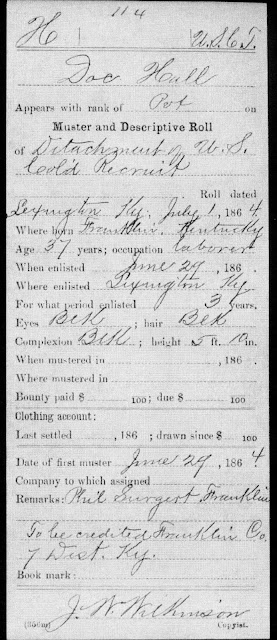 114
H | U.S.C.T.
Doc Hall
Appears with rank of Pvt on
Muster and Descriptive Roll
of Detachment of U. S.
Col'd Recruit
Roll dated
Lexington Ky. July 1, 1864.
Where born Franklin, Kentucky
Age 37 years; occupation laborer
When enlisted June 29, 186 .
Where enlisted Lexington Ky
For what period enlisted 3 years.
Eyes Blk ; hair Blk
Complexion Blk ; height 5 ft. 10 in.
When mustered in , 186 .
Where mustered in
Bounty paid $ 100 ; due $ 100
Clothing account:
Last settled , 186 ; drawn since $ 100
Date of first muster June 29, 1864
Company to which assigned
Remarks: Phil Swigert Franklin
To be credited Franklin Co.
7 Dist. Ky.
Book mark:
J. W. Wilkinson
Copyist.